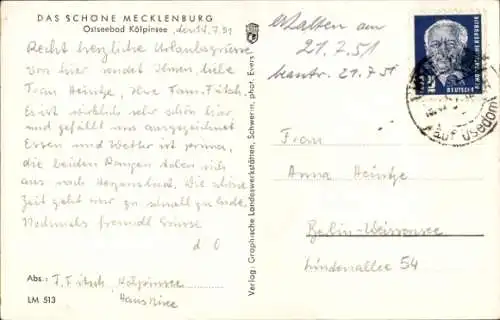 DAS SCHÖNE MECKLENBURG
Ostseebad Kölpinsee, den 14.7.51
Recht herzliche Urlaubsgrüsse
von hier sendet Ihnen, liebe
Frau Heintze, Ihre Fam. Fitsch.
Es ist wirklich sehr schön hier
und gefällt uns ausgezeichnet
Essen und Wetter ist prima,
die beiden Rangen toben sich
aus nach Herzenslust. Die schöne
Zeit geht nur zu schnell zu Ende.
Nochmals freundl Grüsse
d O
Abs.: F. Fitsch, Kölpinsee
Haus
LM 513
Verlag: Graphische Landeswerkstätten, Schwerin, phot. Evers
erhalten am
21.7.51
beantw. 21.7.51
DEUTSCHE
auf Usedom
Frau
Anna Heintze
Berlin-Weissensee
Lindenallee 54